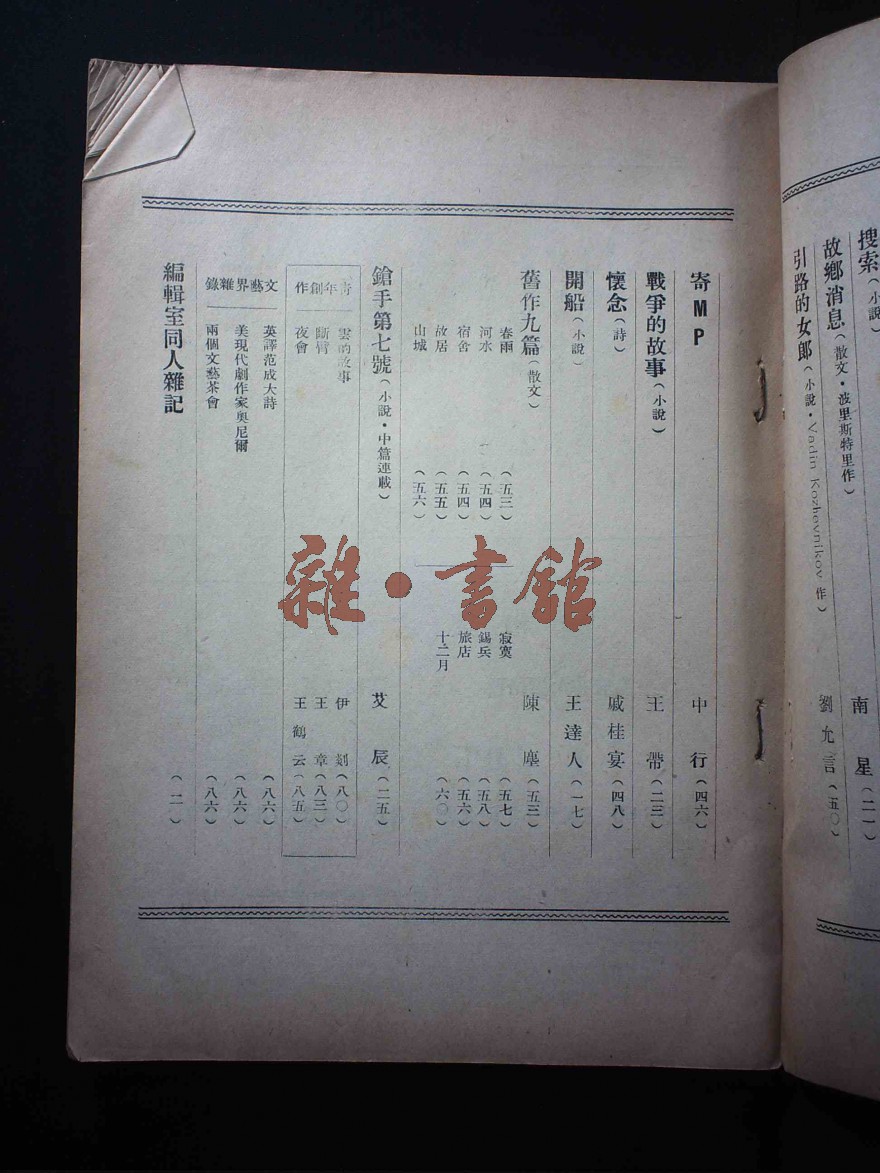 搜索（小說）　南星（二一）
故鄉消息（散文・波里斯特里作）
引路的女郎（小說・Vadin Kozhovnikov 作）　劉允言（五〇）
寄MP　中行（四六）
戰爭的故事（小說）　王帶（二三）
懷念（詩）　戚桂宴（四八）
開船（小說）　王達人（一七）
舊作九篇（散文）　陳塵（五三）
春雨（五三）　寂寞（五七）
河水（五四）　錫兵（五八）
宿舍（五四）　旅店（五六）
故居（五五）　十二月（六〇）
山城（五六）
鎗手第七號（小說・中篇連載）　艾辰（二五）
青年創作
雲的故事　伊剡（八〇）
斷臂　王章（八三）
夜會　王鶴云（八五）
文藝界雜錄
英譯范成大詩（八六）
美現代劇作家奧尼爾（八六）
兩個文藝茶會（八六）
編輯室同人雜記
雜・書館